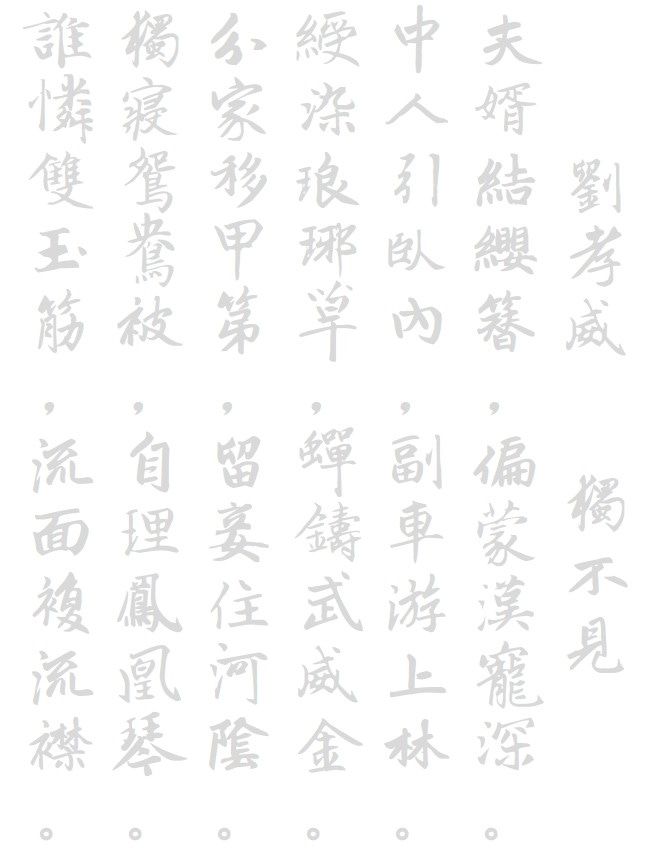 劉孝威 獨不見
夫婿結纓簪，偏蒙漢寵深。
中人引臥內，副車游上林。
綬染琅琊草，蟬鑄武威金。
分家移甲第，留妾住河陰。
獨寢鴛鴦被，自理鳳凰琴。
誰憐雙玉筋，流面複流襟。